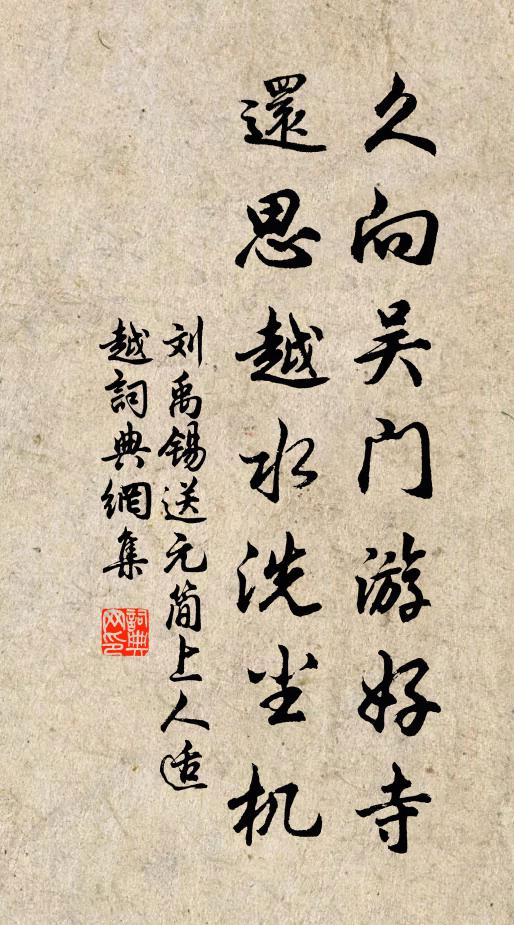 久向吴门游好寺
還思越水洗尘机
刘禹锡送元简上人适
越詞典網集
詞典网印